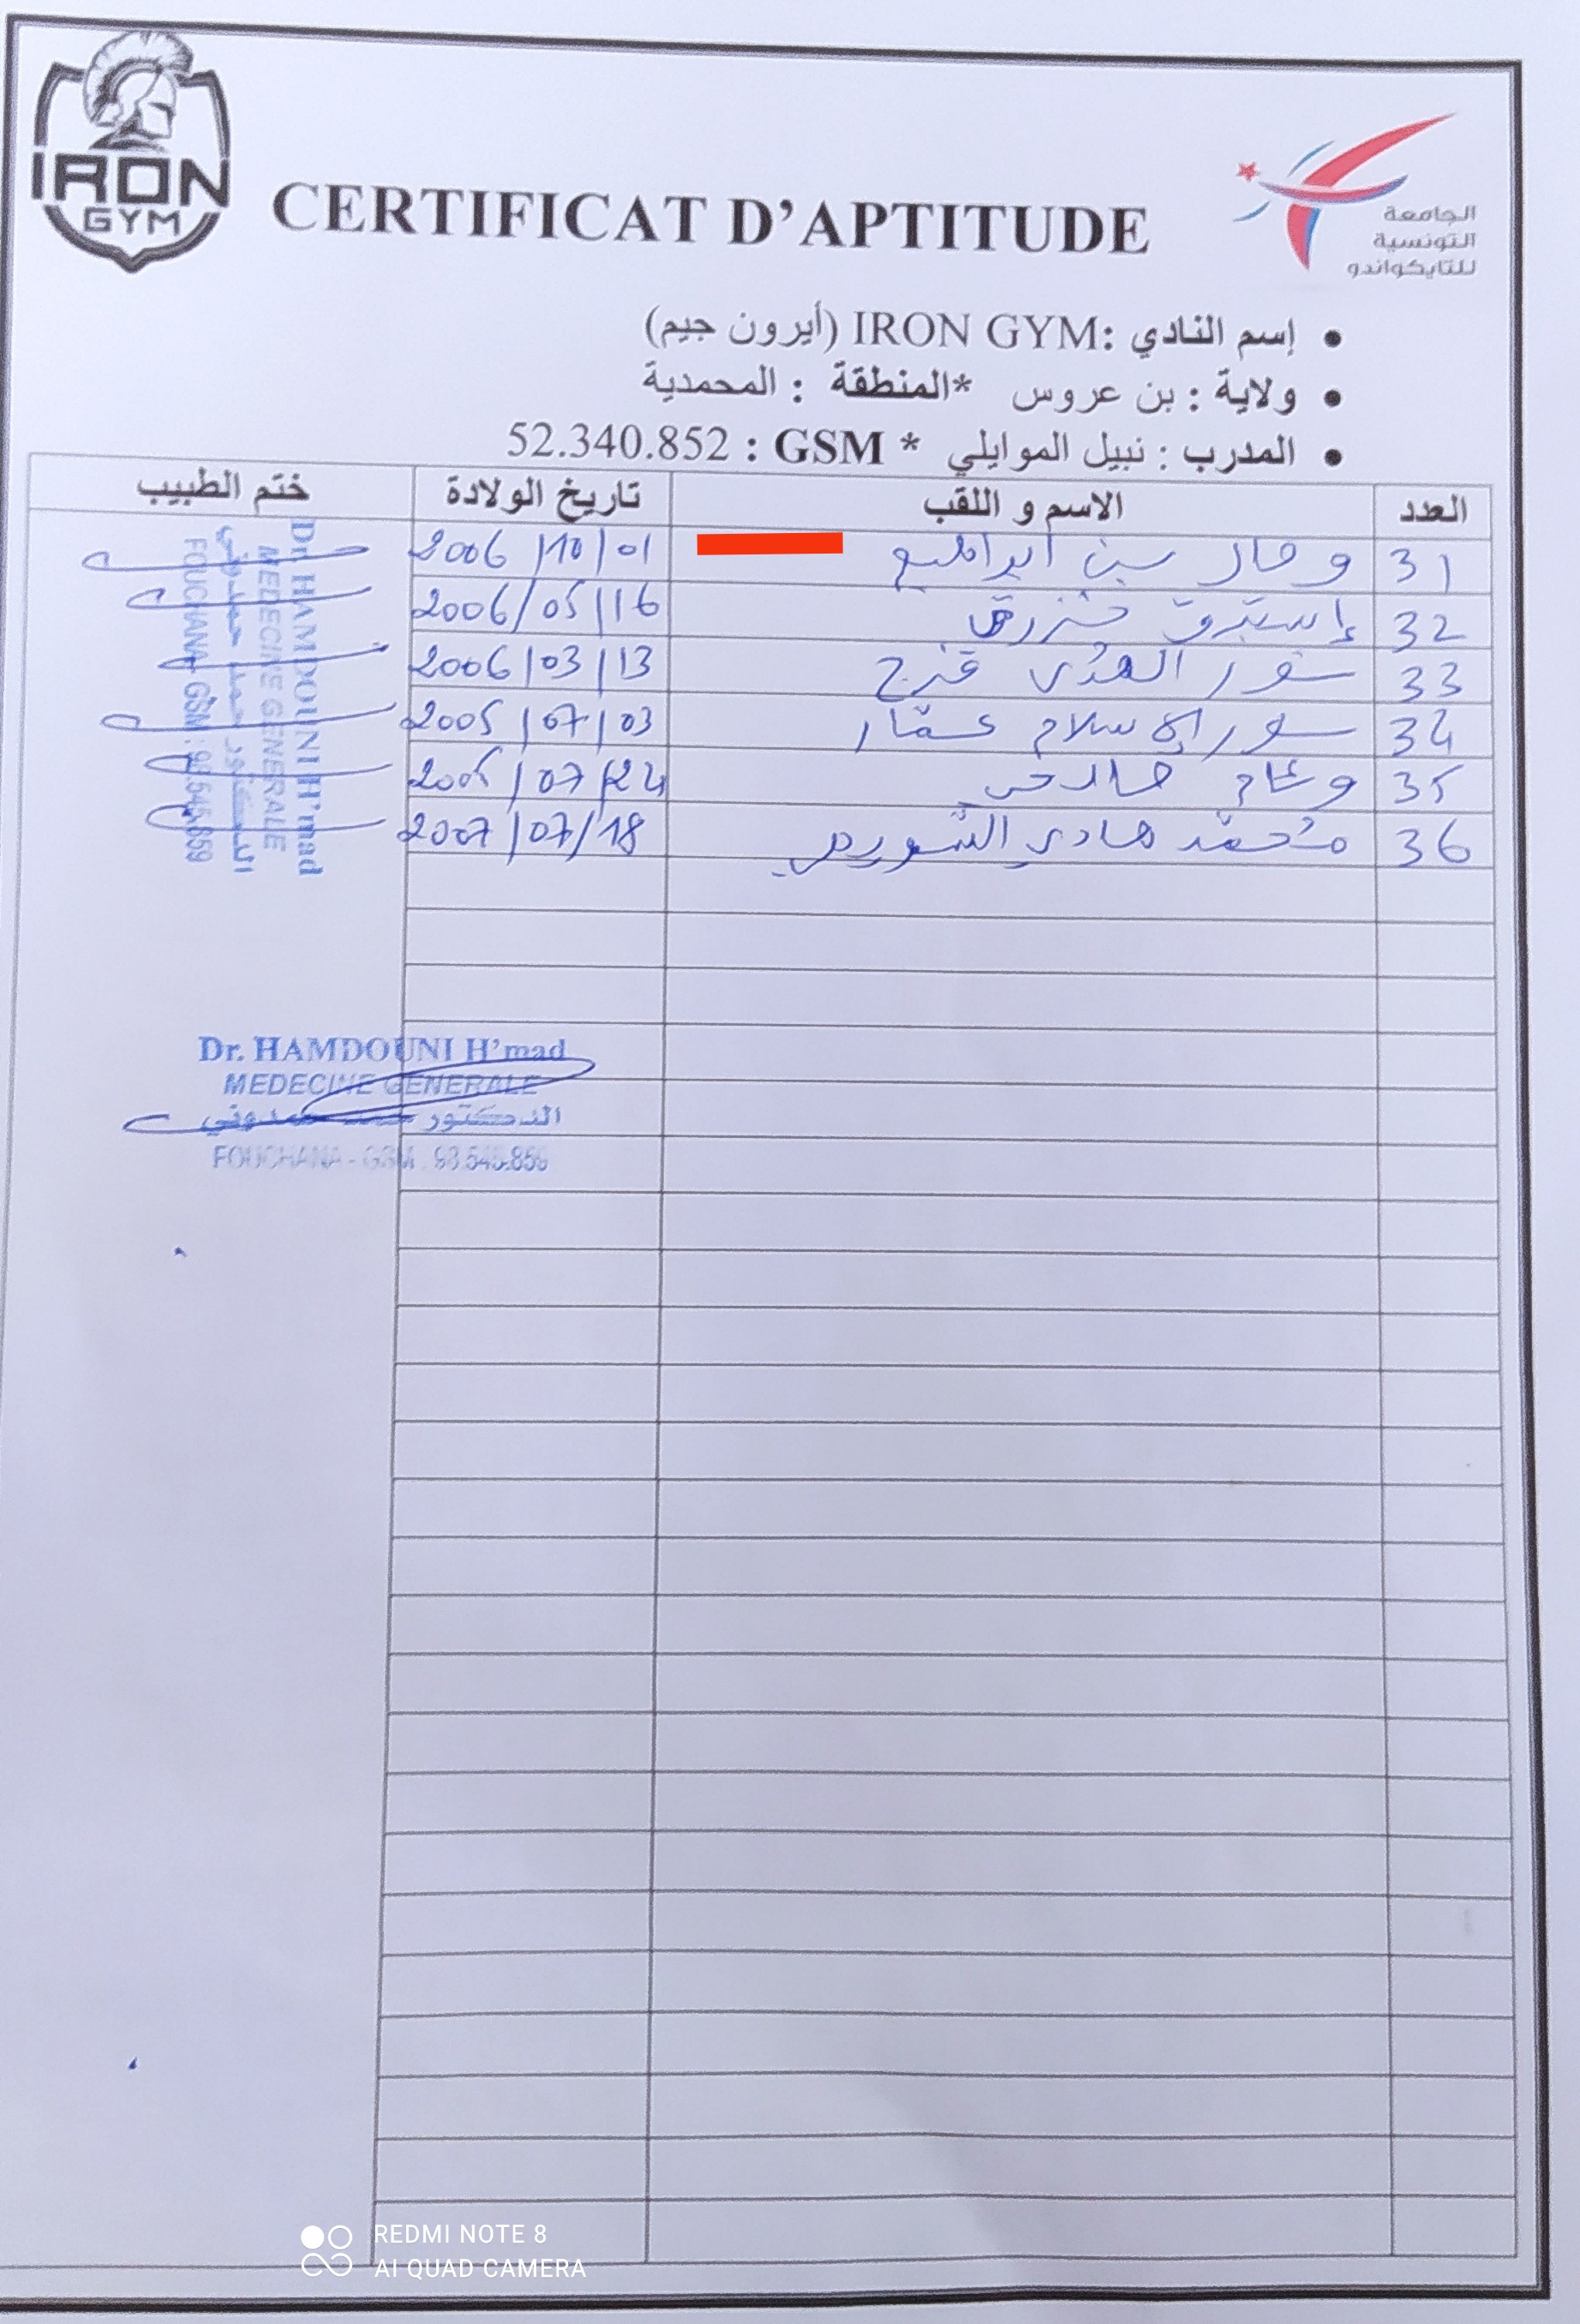 IRON
GYM
CERTIFICAT D'APTITUDE
الجامعة
التونسية
للتايكواندو
• إسم النادي :IRON GYM (أيرون جيم)
• ولاية : بن عروس *المنطقة : المحمدية
• المدرب : نبيل الموايلي * GSM : 52.340.852
العدد الاسم و اللقب تاريخ الولادة ختم الطبيب
31 بن ابراهيم 2006/10/01
32 إستبرق 2006/05/16
33 نور الهدى فرج 2006/03/13
34 نور الإسلام عمّار 2005/07/03
35 وئام 2005/07/24
36 محمّد هادي 2007/07/18
Dr. HAMDOUNI H'mad
MEDECINE GENERALE
الدكتور حمد حمدوني
FOUCHANA - GSM : 98.545.859
Dr. HAMDOUNI H'mad
MEDECINE GENERALE
الدكتور حمد حمدوني
FOUCHANA - GSM : 98.545.859
REDMI NOTE 8
AI QUAD CAMERA